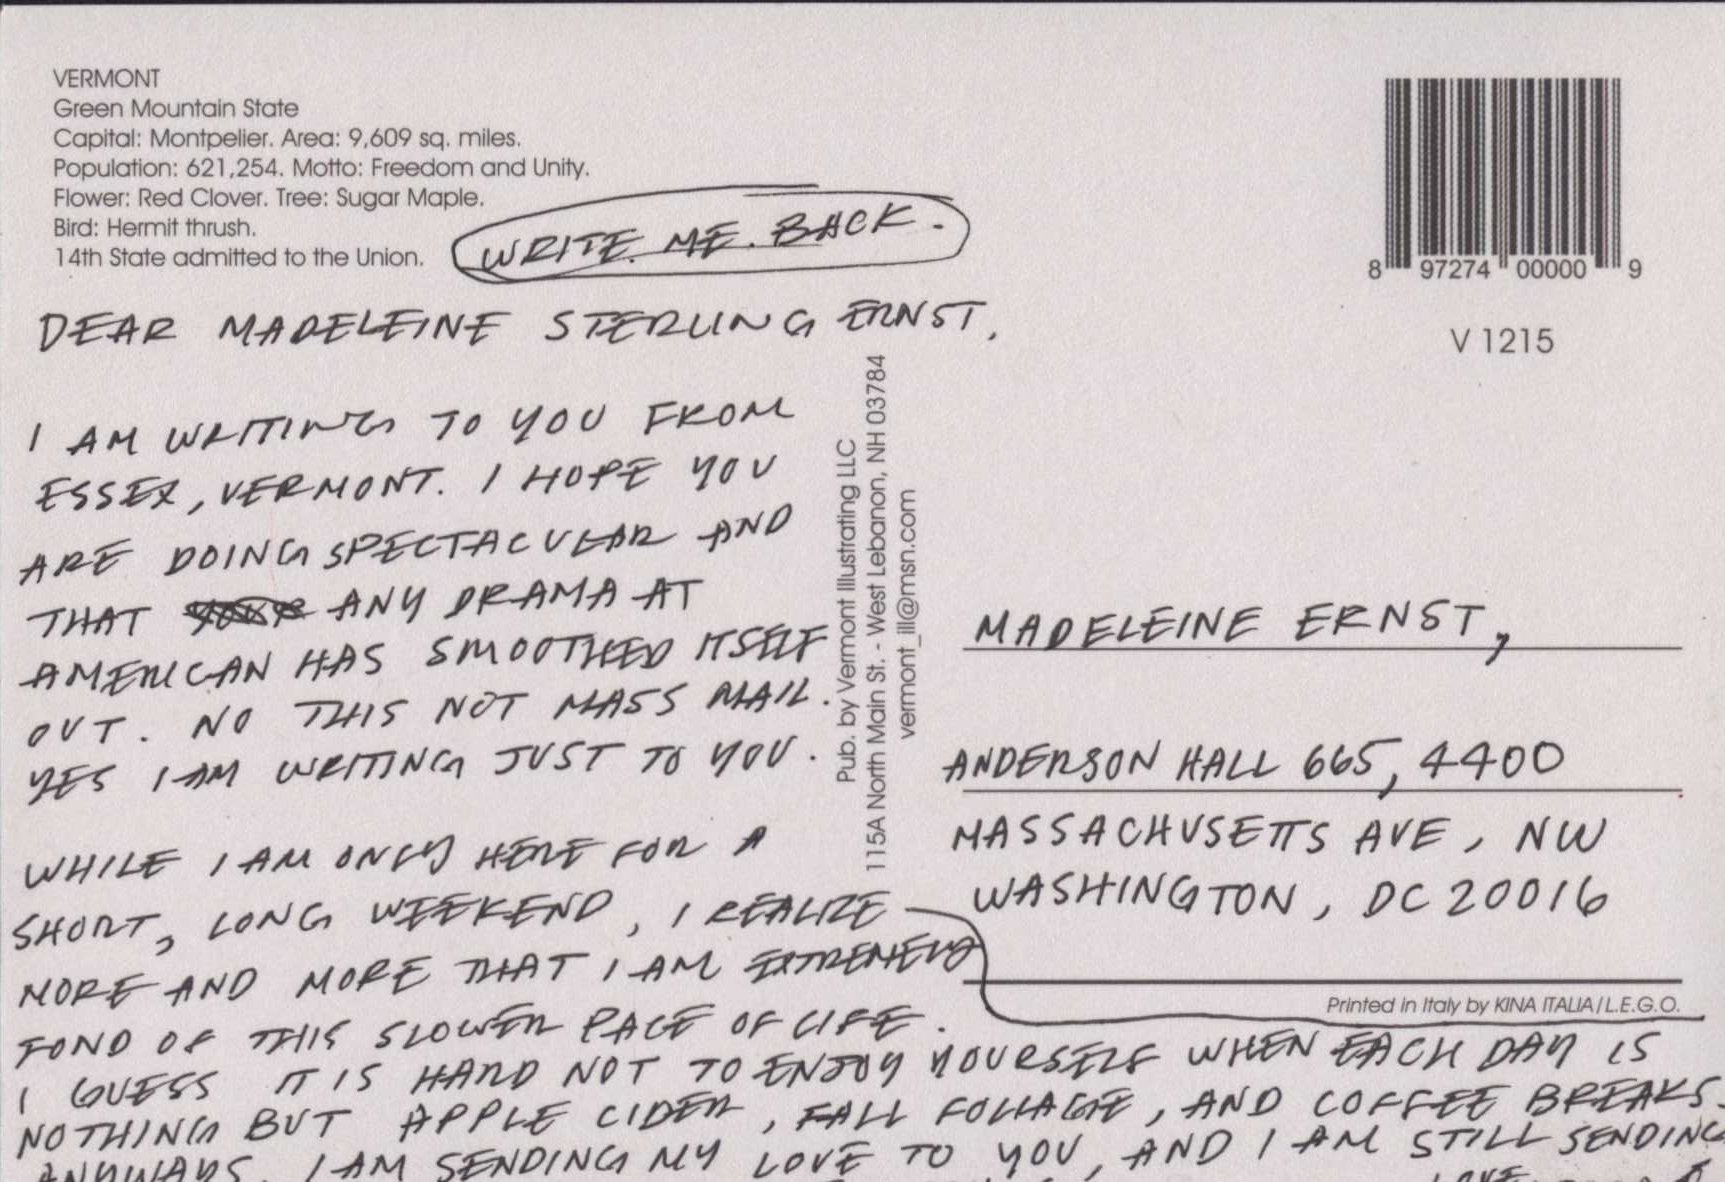 VERMONT
Green Mountain State
Capital: Montpelier. Area: 9,609 sq. miles.
Population: 621,254. Motto: Freedom and Unity.
Flower: Red Clover. Tree: Sugar Maple.
Bird: Hermit thrush.
14th State admitted to the Union.
WRITE ME. BACK.
8 97274 00000 9
V 1215
DEAR MADELEINE STERLING ERNST,
I AM WRITING TO YOU FROM
ESSEX, VERMONT. I HOPE YOU
ARE DOING SPECTACULAR AND
THAT ANY DRAMA AT
AMERICAN HAS SMOOTHED ITSELF
OUT. NO THIS NOT MASS MAIL.
YES I AM WRITING JUST TO YOU.
WHILE I AM ONLY HERE FOR A
SHORT, LONG WEEKEND, I REALIZE
MORE AND MORE THAT I AM EXTREMELY
FOND OF THIS SLOWER PACE OF LIFE.
I GUESS IT IS HARD NOT TO ENJOY YOURSELF WHEN EACH DAY IS
NOTHING BUT APPLE CIDER, FALL FOLLAGIE, AND COFFEE BREAKS.
ANYWAYS, I AM SENDING MY LOVE TO YOU, AND I AM STILL SENDING
LOVE
Pub. by Vermont Illustrating LLC
115A North Main St. - West Lebanon, NH 03784
vermont_ill@msn.com
MADELEINE ERNST,
ANDERSON HALL 665, 4400
MASSACHUSETTS AVE, NW
WASHINGTON, DC 20016
Printed in Italy by KINA ITALIA/L.E.G.O.